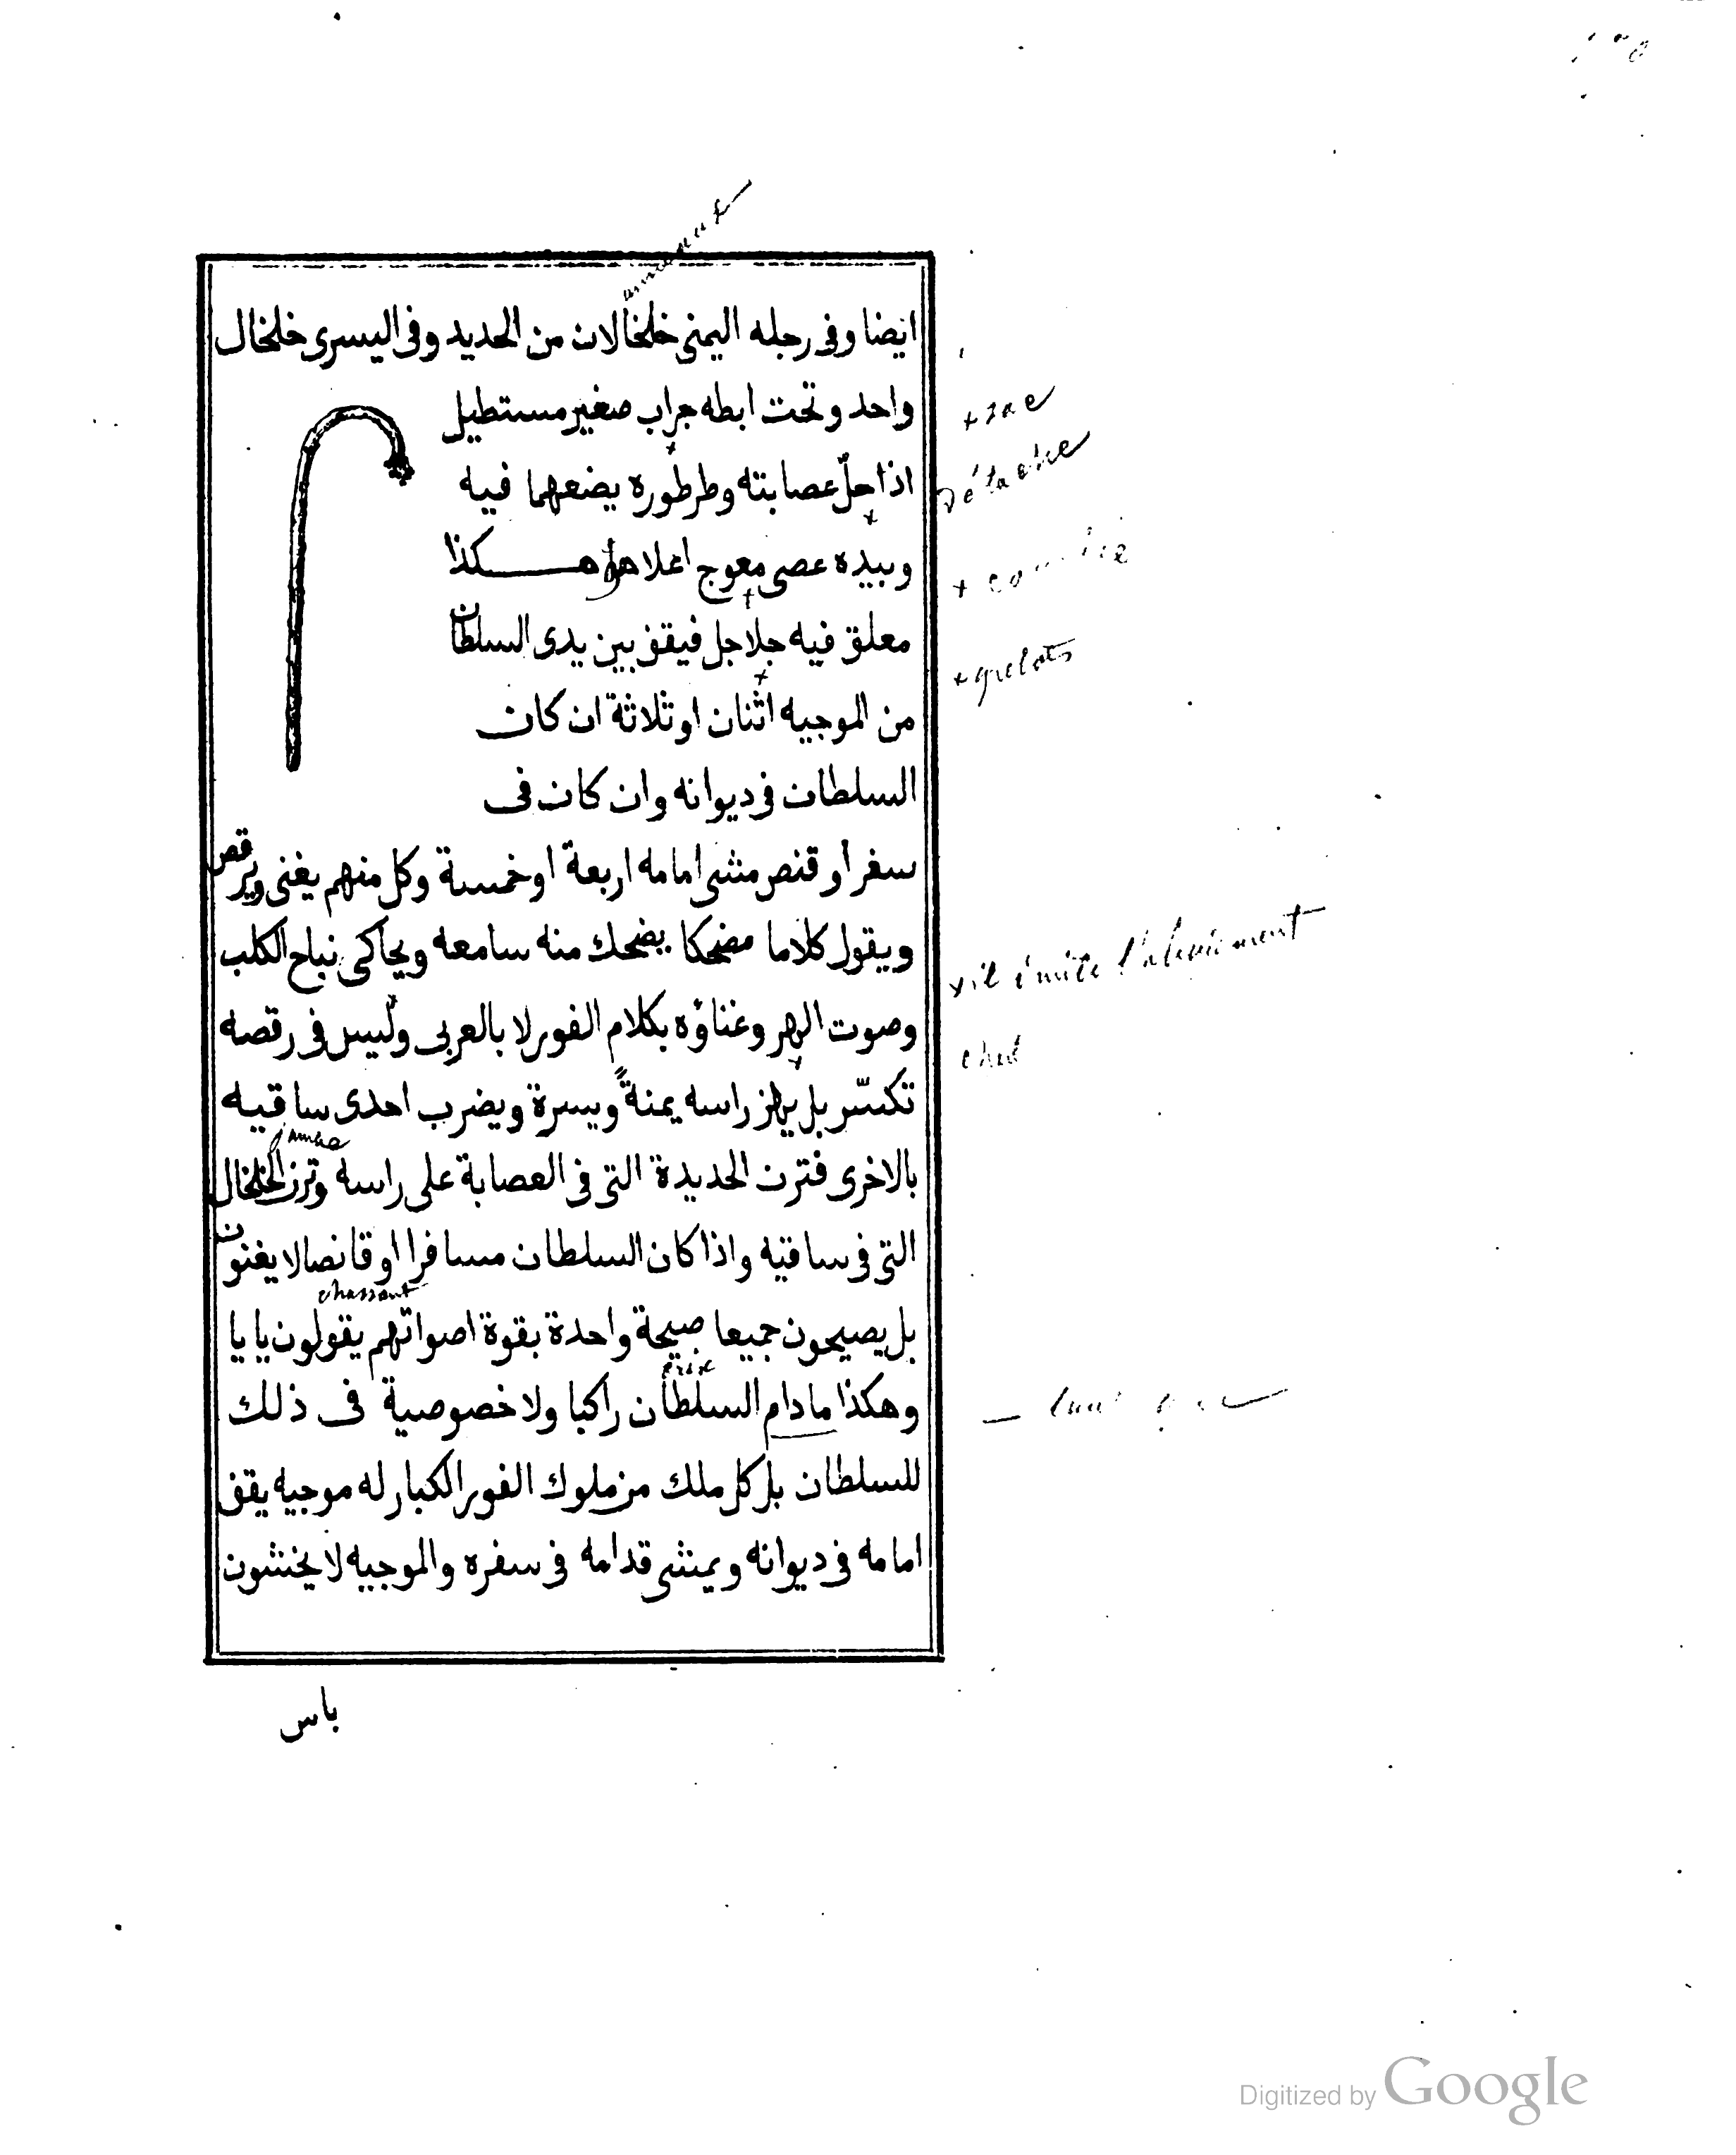 ايضا وفى رجله اليمنى خلخالان من الحديد وفى اليسرى خلخال
واحد وتحت ابطه جراب صغير مستطيل
اذا حلّ عصابته وطرطوره يضعهما فيه
وبيده عصى معوج اعلاها هكذا
معلق فيه جلاجل فيقف بين يدى السلطان
من الموجيه اثنان او ثلاثة ان كان
السلطان فى ديوانه وان كان فى
سفر او قنص مشى امامه اربعة او خمسة وكل منهم يغنى ويرقص
ويقول كلاما مضحكا يضحك منه سامعه ويحاكى نباح الكلب
وصوت الهر وغناؤه بكلام الفور لا بالعربى وليس فى رقصه
تكسّر بل يهز راسه يمنةً ويسرة ويضرب احدى ساقيه
بالاخرى فترن الحديدة التى فى العصابة على راسه وترن الخلخال
التى فى ساقيه واذا كان السلطان مسافرا او قانصا لا يغنون
بل يصيحون جميعا صيحة واحدة بقوة اصواتهم يقولون يا يا
وهكذا ما دام السلطان راكبا ولا خصوصية فى ذلك
للسلطان بل كل ملك من ملوك الفور الكبار له موجيه يقف
امامه فى ديوانه ويمشى قدامه فى سفره والموجيه لا يخشون
باس
+ sac
détache
+ grelots
+ il imite l'aboiement
chat
jambe
chassant
prix
Digitized by Google